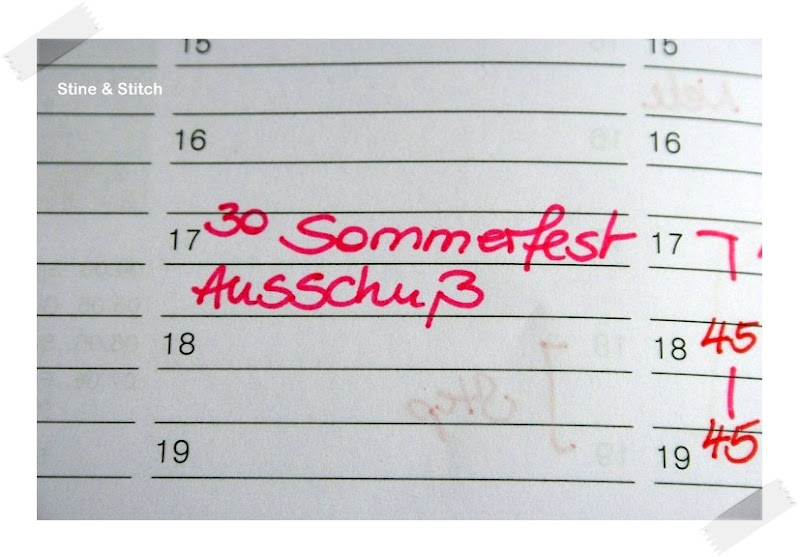 Stine & Stitch
15 15
16 16
17 30 Sommerfest 17
Ausschuß
18 18 45
19 19 45